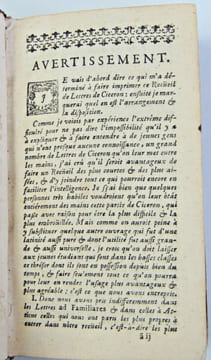 AVERTISSEMENT.
JE vais d'abord dire ce qui m'a dé-
terminé à faire imprimer ce Recueil
de Lettres de Ciceron : ensuite je mar-
querai quel en est l'arrangement &
la disposition.
Comme je voiois par expérience l'extrême dif-
ficulté pour ne pas dire l'impossibilité qu'il y a
à expliquer & à faire entendre à de jeunes gens
qui n'ont presque aucune connoissance, un grand
nombre de Lettres de Ciceron qu'on leur met entre
les mains, j'ai crû qu'il seroit avantageux de
faire un Recueil des plus courtes & des plus ai-
sées, & d'y joindre tout ce qui pourroit encore en
faciliter l'intelligence. Je sçai bien que quelques
personnes très habiles voudroient qu'on leur ôtât
entièrement des mains cette partie de Ciceron, qui
passe avec raison pour être la plus difficile & la
plus embrouillée,
à substituer quelque autre ouvrage qui fut d'une
latinité aussi pure & dont l'utilité fut aussi gran-
de & aussi universelle, je crois qu'on doit laisser
aux jeunes étudians qui sont dans les basses classes
ce thrésor dont ils sont en possession depuis bien du
temps, & faire seulement tout ce qu'on pourra
pour leur en rendre l'usage plus avantageux &
plus agréable : c'est ce que nous avons entrepris.
I. Donc nous avons pris indifféremment dans
les Lettres ad Familiares & dans celles à At-
ticus celles qui nous ont paru les plus propres à
entrer dans notre recueil, c'est-à-dire les plus
à ij